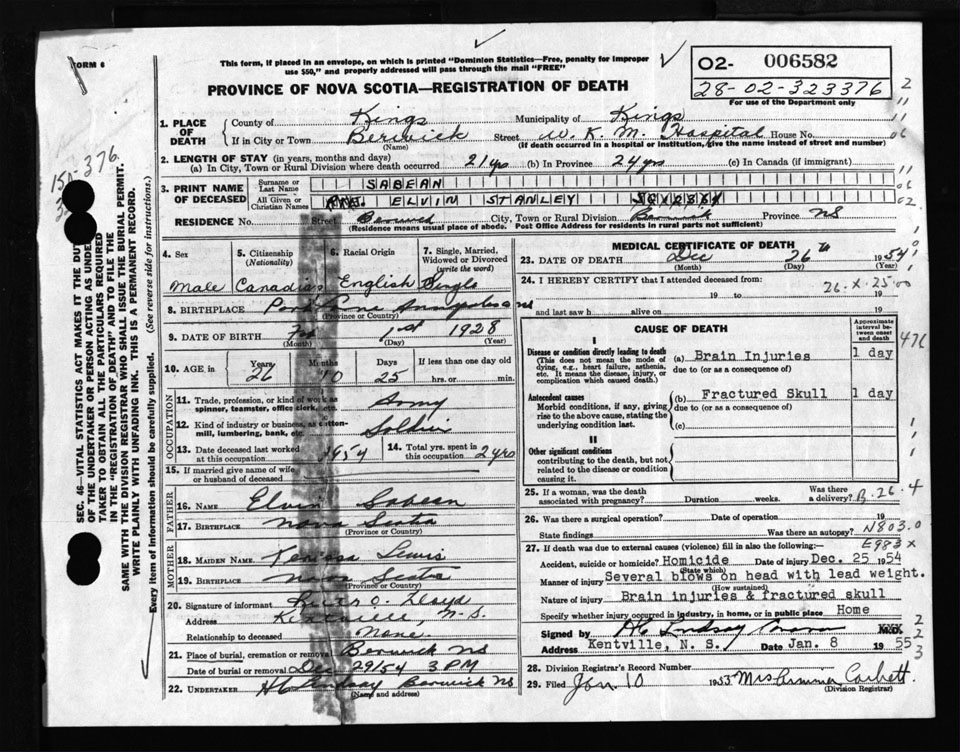 FORM 6
This form, if placed in an envelope, on which is printed "Dominion Statistics—Free, penalty for improper
use $50," and properly addressed will pass through the mail "FREE"
PROVINCE OF NOVA SCOTIA—REGISTRATION OF DEATH
02- 006582
28-02-323376
For use of the Department only
1. PLACE OF DEATH
County of Kings Municipality of Kings
If in City or Town Berwick Street W. K. M. Hospital House No.
(Name) (If death occurred in a hospital or institution, give the name instead of street and number)
2. LENGTH OF STAY (in years, months and days)
(a) In City, Town or Rural Division where death occurred 21 yrs (b) In Province 24 yrs (c) In Canada (if immigrant)
3. PRINT NAME OF DECEASED
Surname or Last Name SABEAN
All Given or Christian Names ELVIN STANLEY
RESIDENCE No. Street Berwick City, Town or Rural Division Berwick Province NS
(Residence means usual place of abode. Post Office Address for residents in rural parts not sufficient)
4. Sex
Male
5. Citizenship
(Nationality)
Canadian
6. Racial Origin
English
7. Single, Married, Widowed or Divorced
(write the word)
Single
8. BIRTHPLACE Port Annapolis NS
(Province or Country)
9. DATE OF BIRTH Feb 1st 1928
(Month) (Day) (Year)
10. AGE in Years Months Days If less than one day old
26 10 25 hrs. or min.
OCCUPATION
11. Trade, profession or kind of work as
spinner, teamster, office clerk, etc. Army
12. Kind of industry or business, as cotton-
mill, lumbering, bank, etc. Soldier
13. Date deceased last worked
at this occupation 1954
14. Total yrs. spent in
this occupation 2 yrs
15. If married give name of wife
or husband of deceased
FATHER
16. NAME Elvin Sabean
17. BIRTHPLACE Nova Scotia
(Province or Country)
MOTHER
18. MAIDEN NAME Lewis
19. BIRTHPLACE Nova Scotia
(Province or Country)
20. Signature of informant O. Lloyd
Address Kentville, N.S.
Relationship to deceased None.
21. Place of burial, cremation or removal Berwick NS
Date of burial or removal Dec 29/54 3 PM
22. UNDERTAKER H C Lindsay Berwick NS
(Name and address)
MEDICAL CERTIFICATE OF DEATH
23. DATE OF DEATH Dec 26th 1954
(Month) (Day) (Year)
24. I HEREBY CERTIFY that I attended deceased from:
26-X-25-00
19 to 19
and last saw h alive on 19
CAUSE OF DEATH
Approximate interval between onset and death
I
Disease or condition directly leading to death
(This does not mean the mode of
dying, e.g., heart failure, asthenia,
etc. It means the disease, injury, or
complication which caused death.)
(a) Brain Injuries 1 day
due to (or as a consequence of)
Antecedent causes
Morbid conditions, if any, giving
rise to the above cause, stating the
underlying condition last.
(b) Fractured Skull 1 day
due to (or as a consequence of)
(c)
II
Other significant conditions
contributing to the death, but not
related to the disease or condition
causing it.
476
25. If a woman, was the death
associated with pregnancy? Duration weeks. Was there a delivery?
B-26-4
26. Was there a surgical operation? Date of operation 19
State findings Was there an autopsy?
N803.0
E983 X
27. If death was due to external causes (violence) fill in also the following:—
Accident, suicide or homicide? Homicide Date of injury Dec. 25 1954
(State which)
Manner of injury Several blows on head with lead weight.
(How sustained)
Nature of injury Brain injuries & fractured skull
Specify whether injury occurred in industry, in home, or in public place Home
Signed by H C Lindsay Coroner
Address Kentville, N. S. Date Jan. 8 1955
28. Division Registrar's Record Number
29. Filed Jan 10 1955 Mrs Corbett.
(Division Registrar)
SEC. 46—VITAL STATISTICS ACT MAKES IT THE DUTY
OF THE UNDERTAKER OR PERSON ACTING AS UNDER-
TAKER TO OBTAIN ALL THE PARTICULARS REQUIRED
IN THE "REGISTRATION OF DEATH" AND TO FILE THE
SAME WITH THE DIVISION REGISTRAR WHO SHALL ISSUE THE BURIAL PERMIT.
WRITE PLAINLY WITH UNFADING INK. THIS IS A PERMANENT RECORD.
Every item of information should be carefully supplied. (See reverse side for instructions.)